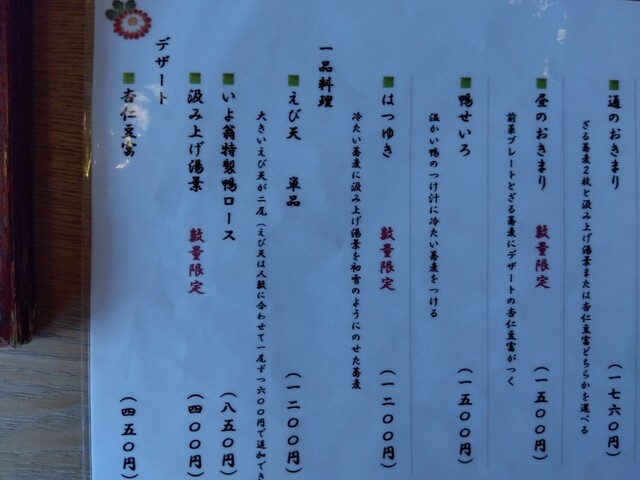 通のおきまり （一七六〇円）
ざる蕎麦２枚と汲み上げ湯葉または杏仁豆富どちらかを選べる
昼のおきまり 数量限定 （一五〇〇円）
前菜プレートとざる蕎麦にデザートの杏仁豆富がつく
鴨せいろ （一五〇〇円）
温かい鴨のつけ汁に冷たい蕎麦をつける
はつゆき 数量限定 （一二〇〇円）
冷たい蕎麦に汲み上げ湯葉を初雪のようにのせた蕎麦
一品料理
えび天 単品 （一二〇〇円）
大きいえび天が二尾（えび天は人数に合わせて一尾ずつ六〇〇円で追加でき
いよ翁特製鴨ロース （八五〇円）
汲み上げ湯葉 数量限定 （四〇〇円）
デザート
杏仁豆富 （四五〇円）